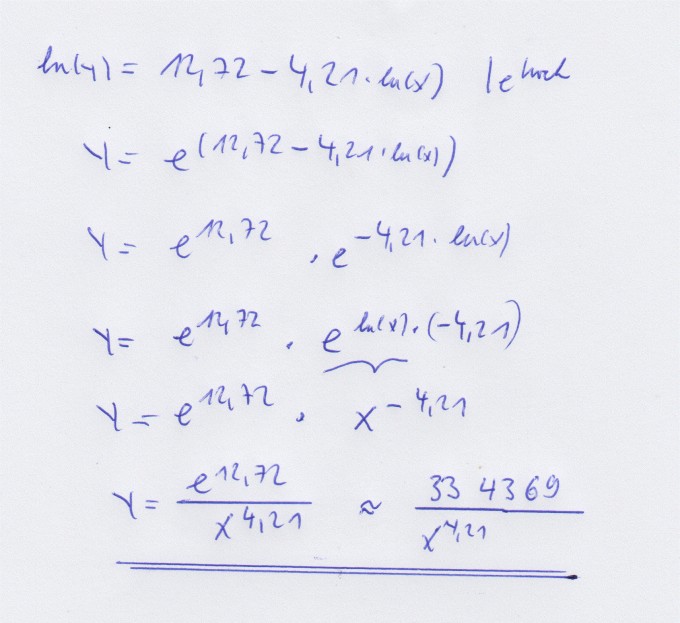 ln(y) = 12,72 - 4,21 · ln(x) | e hoch
y = e^(12,72 - 4,21 · ln(x))
y = e^12,72 · e^-4,21 · ln(x)
y = e^12,72 · e^ln(x) · (-4,21)
y = e^12,72 · x^-4,21
y = e^12,72 / x^4,21 ≈ 33 4369 / x^4,21